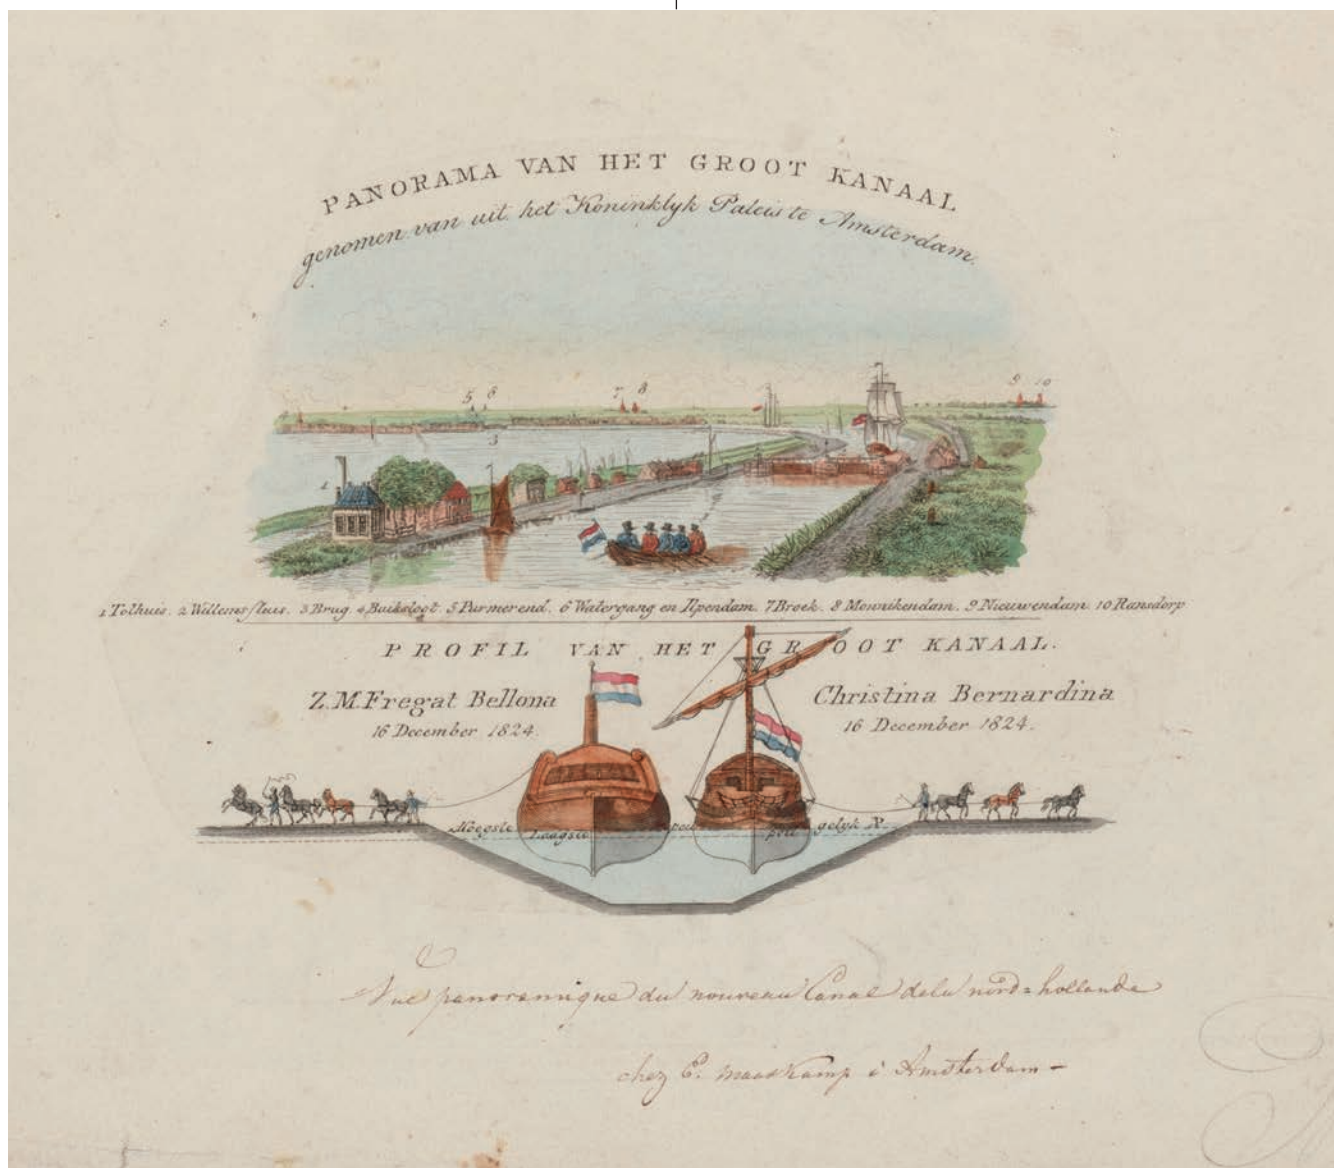 PANORAMA VAN HET GROOT KANAAL
genomen van uit het Koninklyk Paleis te Amsterdam.
5 6 7 8 9 10
3
1
1 Tolhuis. 2 Willemssluis. 3 Brug. 4 Buiksloot. 5 Purmerend. 6 Watergang en Ilpendam. 7 Broek. 8 Monnikendam. 9 Nieuwendam. 10 Ransdorp
PROFIL VAN HET GROOT KANAAL.
Z.M. Fregat Bellona
16 December 1824.
Christina Bernardina
16 December 1824.
Hoogste peil gelyk
Laagste peil
Vue panoramique du nouveau Canal dela nord=hollande
chez E. Maaskamp à Amsterdam